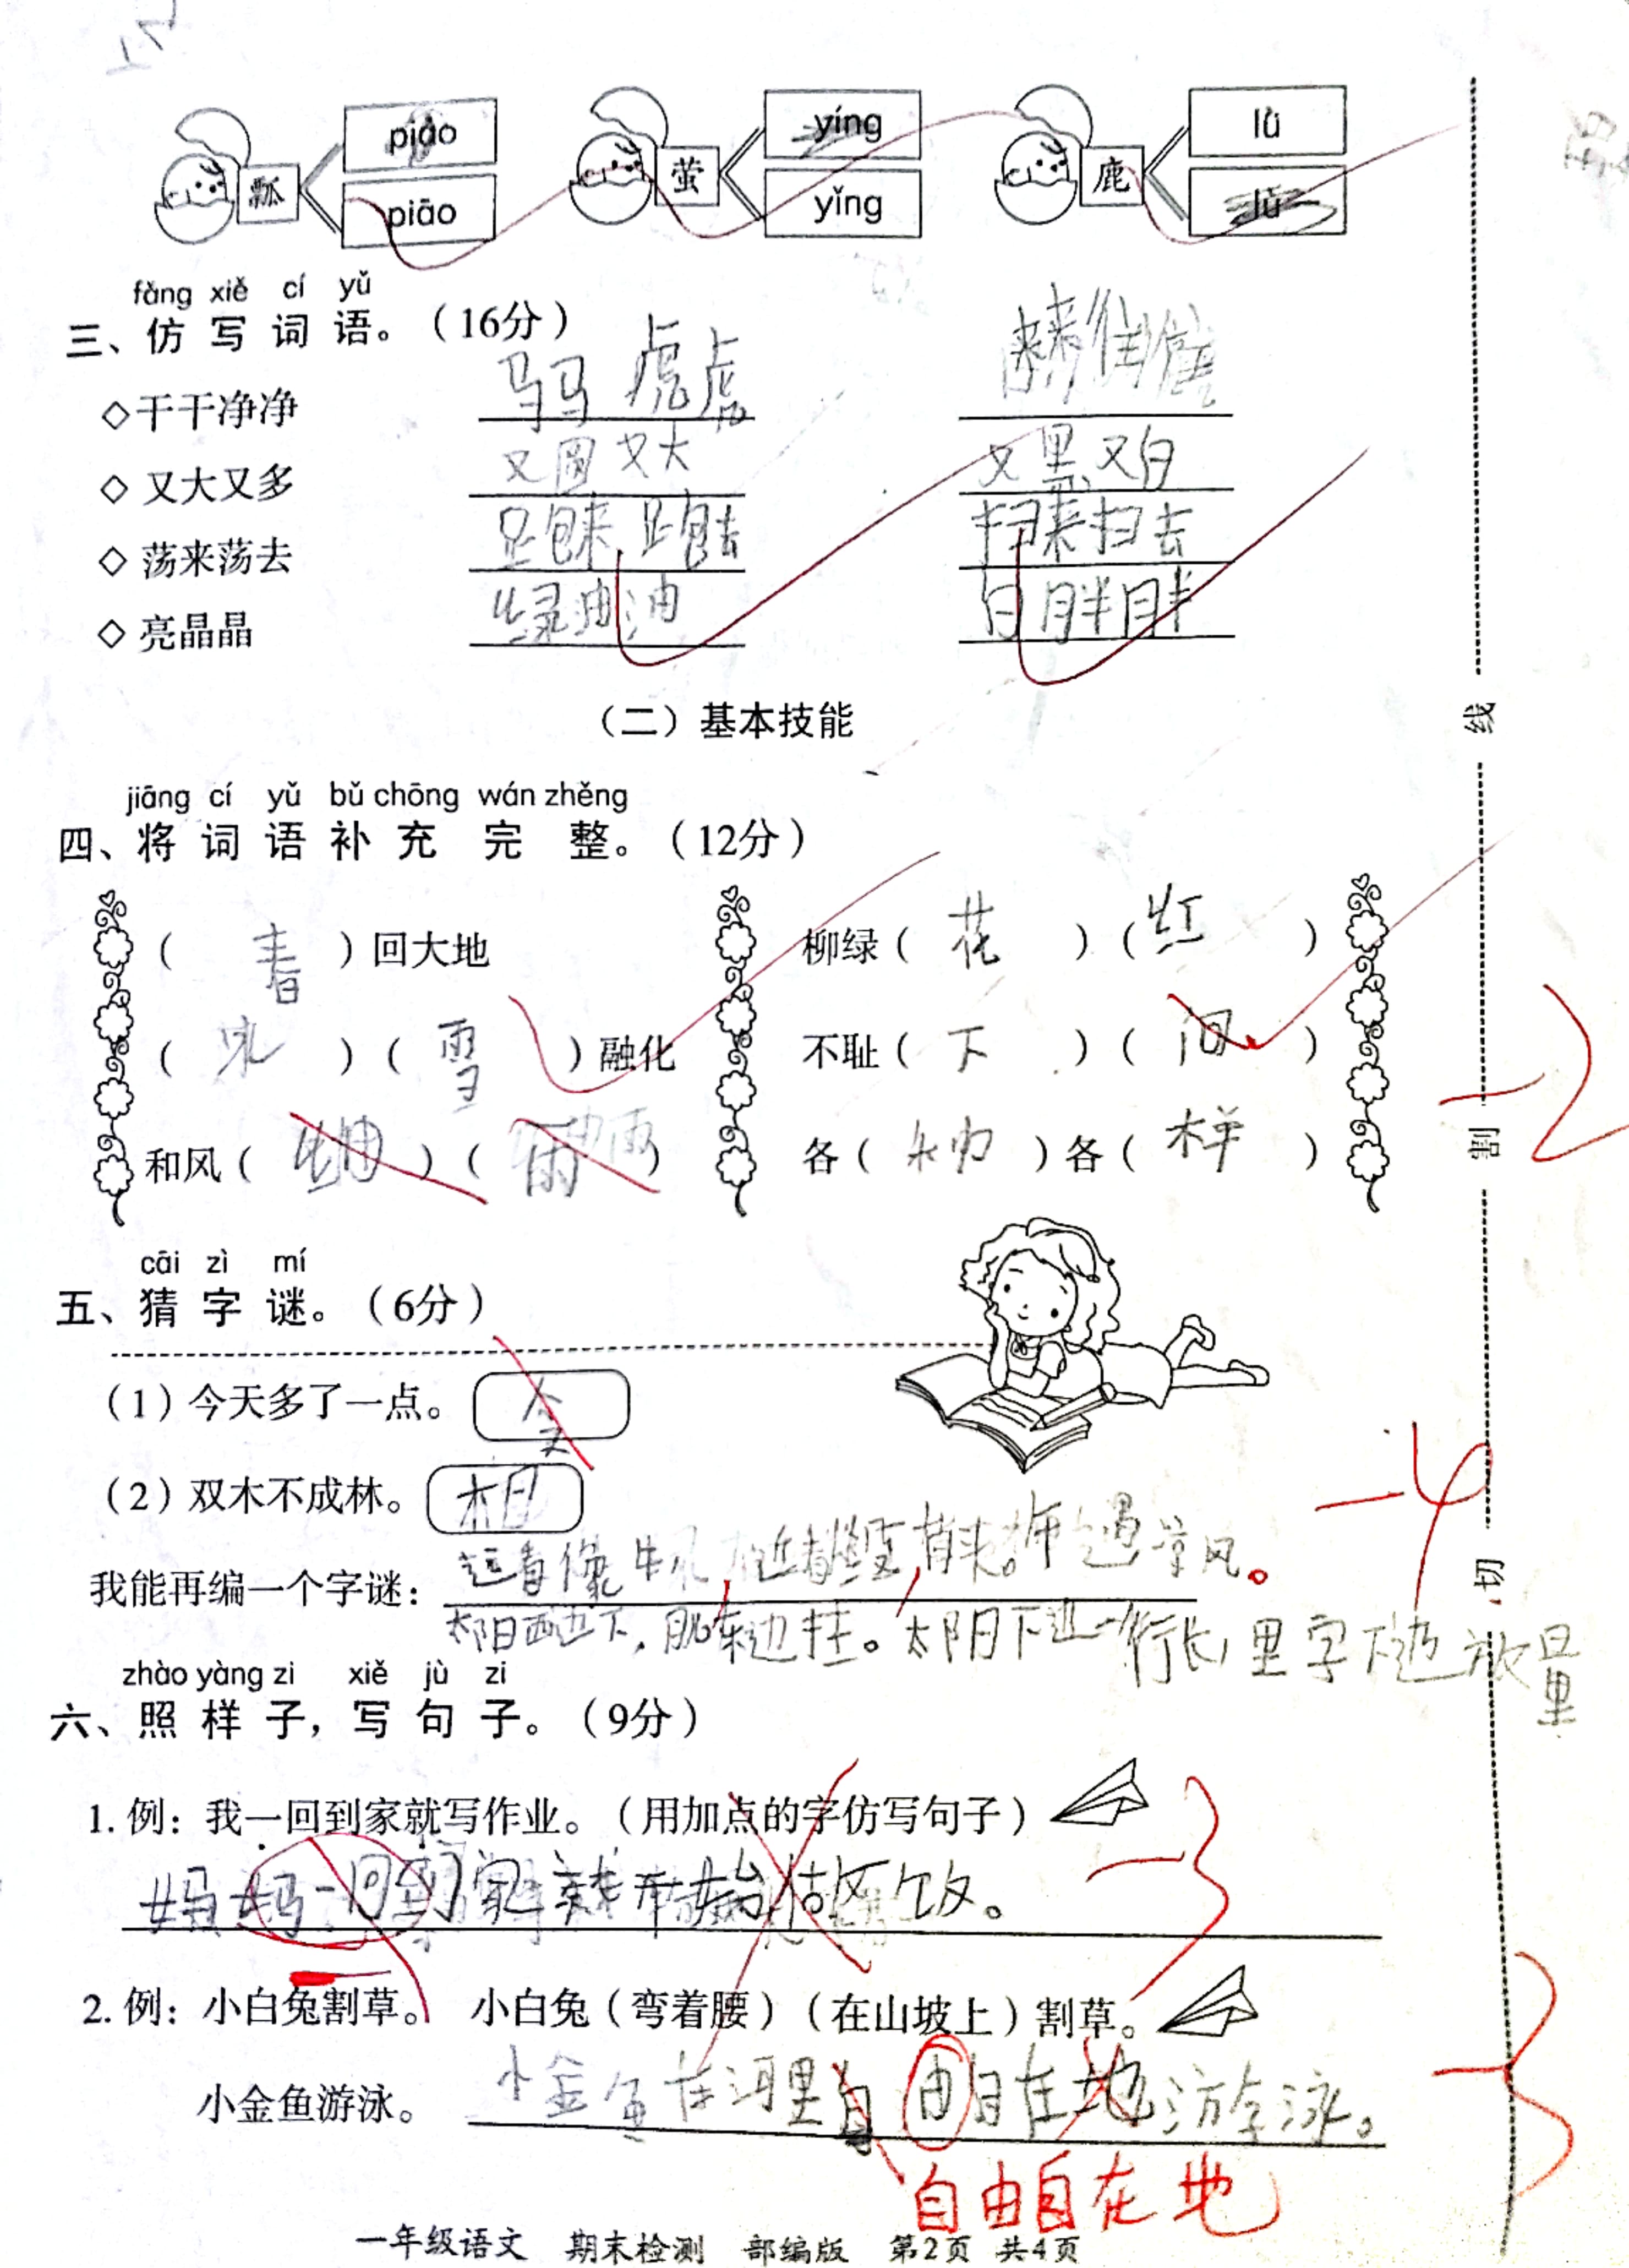 piáo yíng lù
瓢 萤 鹿
piāo yǐng lǜ
fǎng xiě cí yǔ
三、仿写词语。（16分）
◇干干净净 马马虎虎
◇又大又多 又圆又大 又黑又白
◇荡来荡去 跑来跑去 扫来扫去
◇亮晶晶 绿油油 白胖胖
（二）基本技能
jiāng cí yǔ bǔ chōng wán zhěng
四、将词语补充完整。（12分）
（春）回大地 柳绿（花）（红）
（冰）（雪）融化 不耻（下）（问）
和风（ ）（ ） 各（ ）各（样）
cāi zì mí
五、猜字谜。（6分）
（1）今天多了一点。
（2）双木不成林。 相
-4
我能再编一个字谜：
太阳西边下，月儿东边挂。太阳下边一行长，里字下边放 量
zhào yàng zi xiě jù zi
六、照样子，写句子。（9分）
1. 例：我一回到家就写作业。（用加点的字仿写句子）
妈妈一回到家就开始做饭。
-3
2. 例：小白兔割草。 小白兔（弯着腰）（在山坡上）割草。
小金鱼游泳。 小金鱼在河里自由自在地游泳。
-3
自由自在地
一年级语文 期末检测 部编版 第2页 共4页
-2
线
割
切